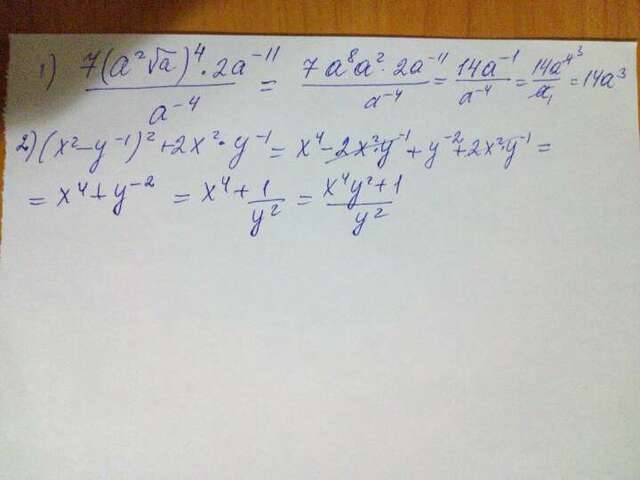 1) 7(a²√a)⁴·2a⁻¹¹/a⁻⁴ = 7a⁸a²·2a⁻¹¹/a⁻⁴ = 14a⁻¹/a⁻⁴ = 14a⁴³/a₁ = 14a³
2) (x²-y⁻¹)²+2x²·y⁻¹ = x⁴-2x²y⁻¹+y⁻²+2x²·y⁻¹ =
= x⁴+y⁻² = x⁴+1/y² = x⁴y²+1/y²